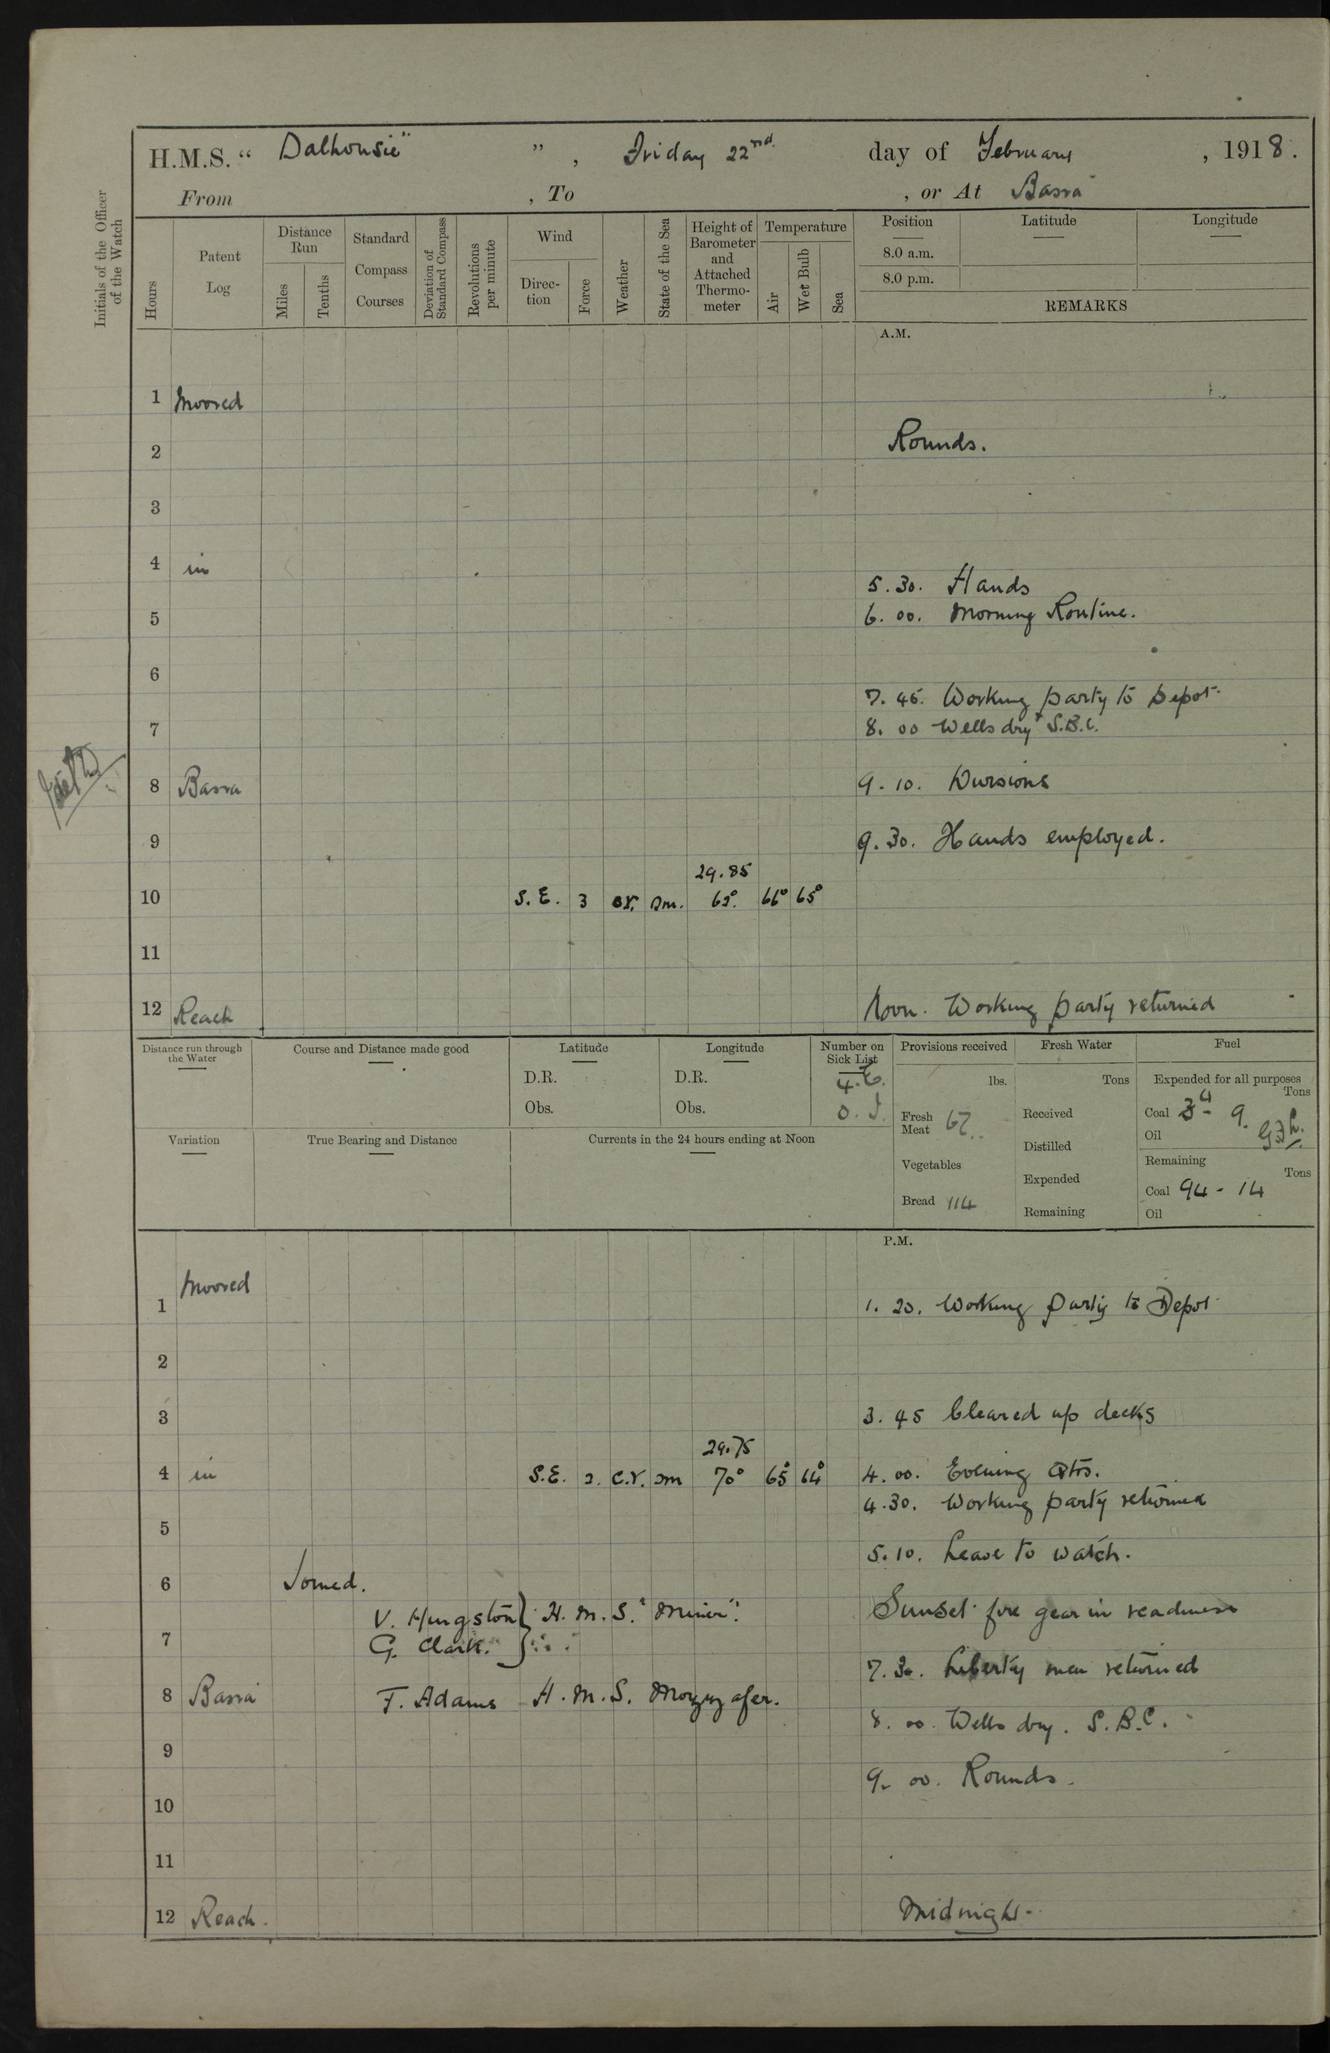 H.M.S. “ Dalhousie” ” , Friday 22nd day of February , 1918.
From , To , or At Basra
Initials of the Officer of the Watch
Hours
Patent Log
Distance Run
Miles
Tenths
Standard Compass Courses
Deviation of Standard Compass
Revolutions per minute
Wind
Direc-tion
Force
Weather
State of the Sea
Height of Barometer and Attached Thermo-meter
Temperature
Air
Wet Bulb
Sea
Position
8.0 a.m.
8.0 p.m.
Latitude
Longitude
REMARKS
A.M.
1 Moored
2 Rounds.
3
4 in
5.30. Hands
5 6.00. Morning Routine.
6
7.45. Working party to Depot.
7 8.00 Wells dry S.B.C.
8 Basra 9.10. Divisions
9 9.30. Hands employed.
29.85
10 S.E. 3 sm. 66° 65°
11
12 Reach Noon. Working party returned
Distance run through the Water
Course and Distance made good
Latitude
D.R.
Obs.
Longitude
D.R.
Obs.
Number on Sick List
Provisions received
lbs.
Fresh Meat 67
Vegetables
Bread 114
Fresh Water
Tons
Received
Distilled
Expended
Remaining
Fuel
Expended for all purposes
Tons
Coal 9.
Oil
Remaining
Tons
Coal 94 - 14
Oil
Variation
True Bearing and Distance
Currents in the 24 hours ending at Noon
P.M.
Moored
1 1.20. Working party to Depot
2
3 3.45 Cleared up decks
29.75
4 in S.E. 2. c.v. sm 70° 65° 64° 4.00. Evening Qtrs.
4.30. Working party returned
5
5.10. Leave to watch.
6 Joined.
V. Hingston } H.M.S. "Miner". Sunset fire gear in readiness
7 G. Clark.
7.30. Liberty men returned
8 Basra F. Adams H.M.S. Mozuzafer.
8.00. Wells dry. S.B.C.
9
9.00. Rounds.
10
11
12 Reach. Midnight.